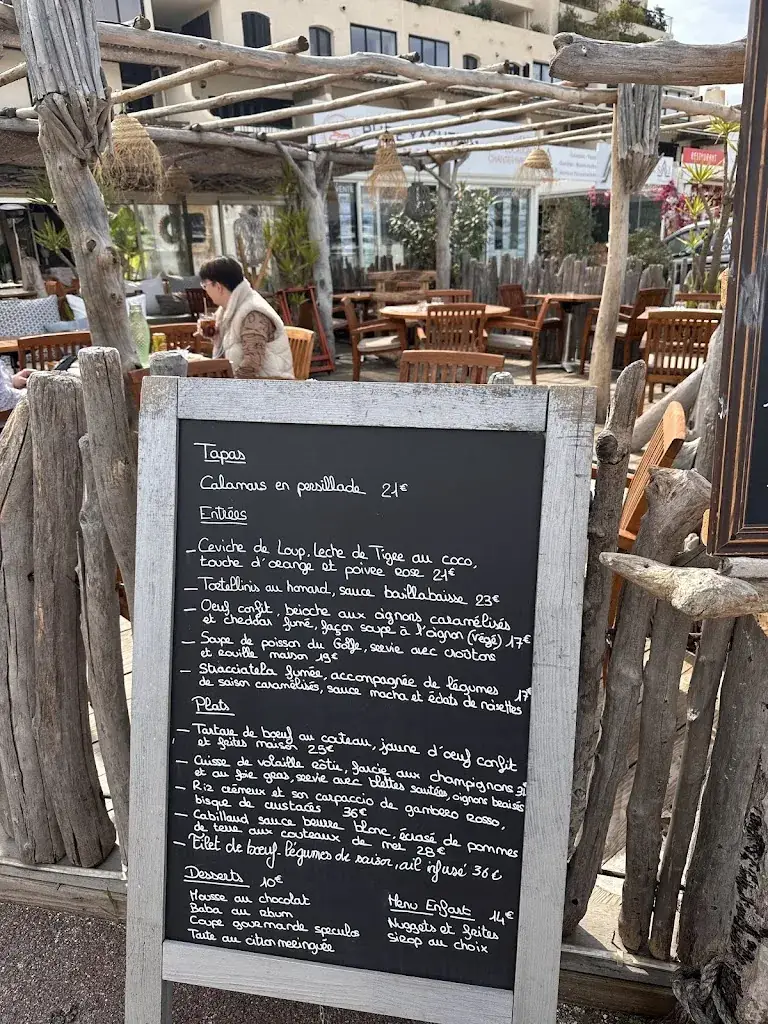 RESTAURANT
Tapas
Calamars en persillade 21€
Entrées
- Ceviche de Loup, leche de Tigre au coco,
touche d'orange et poivre rose 21€
- Tortellinis au homard, sauce bouillabaisse 23€
- Oeuf confit, brioche aux oignons caramélisés
et cheddar fumé, façon soupe à l'oignon (végé) 17€
- Soupe de poisson du Golfe, servie avec croûtons
et rouille maison 19€
- Stracciatela fumée, accompagnée de légumes
de saison caramélisés, sauce macha et éclats de noisettes 17€
Plats
- Tartare de bœuf au couteau, jaune d'œuf confit
et frites maison 25€
- Cuisse de volaille rôtie, farcie aux champignons
et au foie gras, servie avec blettes sautées, oignons braisés
- Riz crémeux et son carpaccio de gambero rosso,
bisque de crustacés 36€
- Cabillaud sauce beurre blanc, écrasé de pommes
de terre aux couteaux de mer 28€
- Filet de bœuf légumes de saison, ail infusé 36€
Desserts 10€
Mousse au chocolat
Baba au rhum
Coupe gourmande speculos
Tarte au citron meringuée
Menu Enfant 14€
Nuggets et frites
Sirop au choix